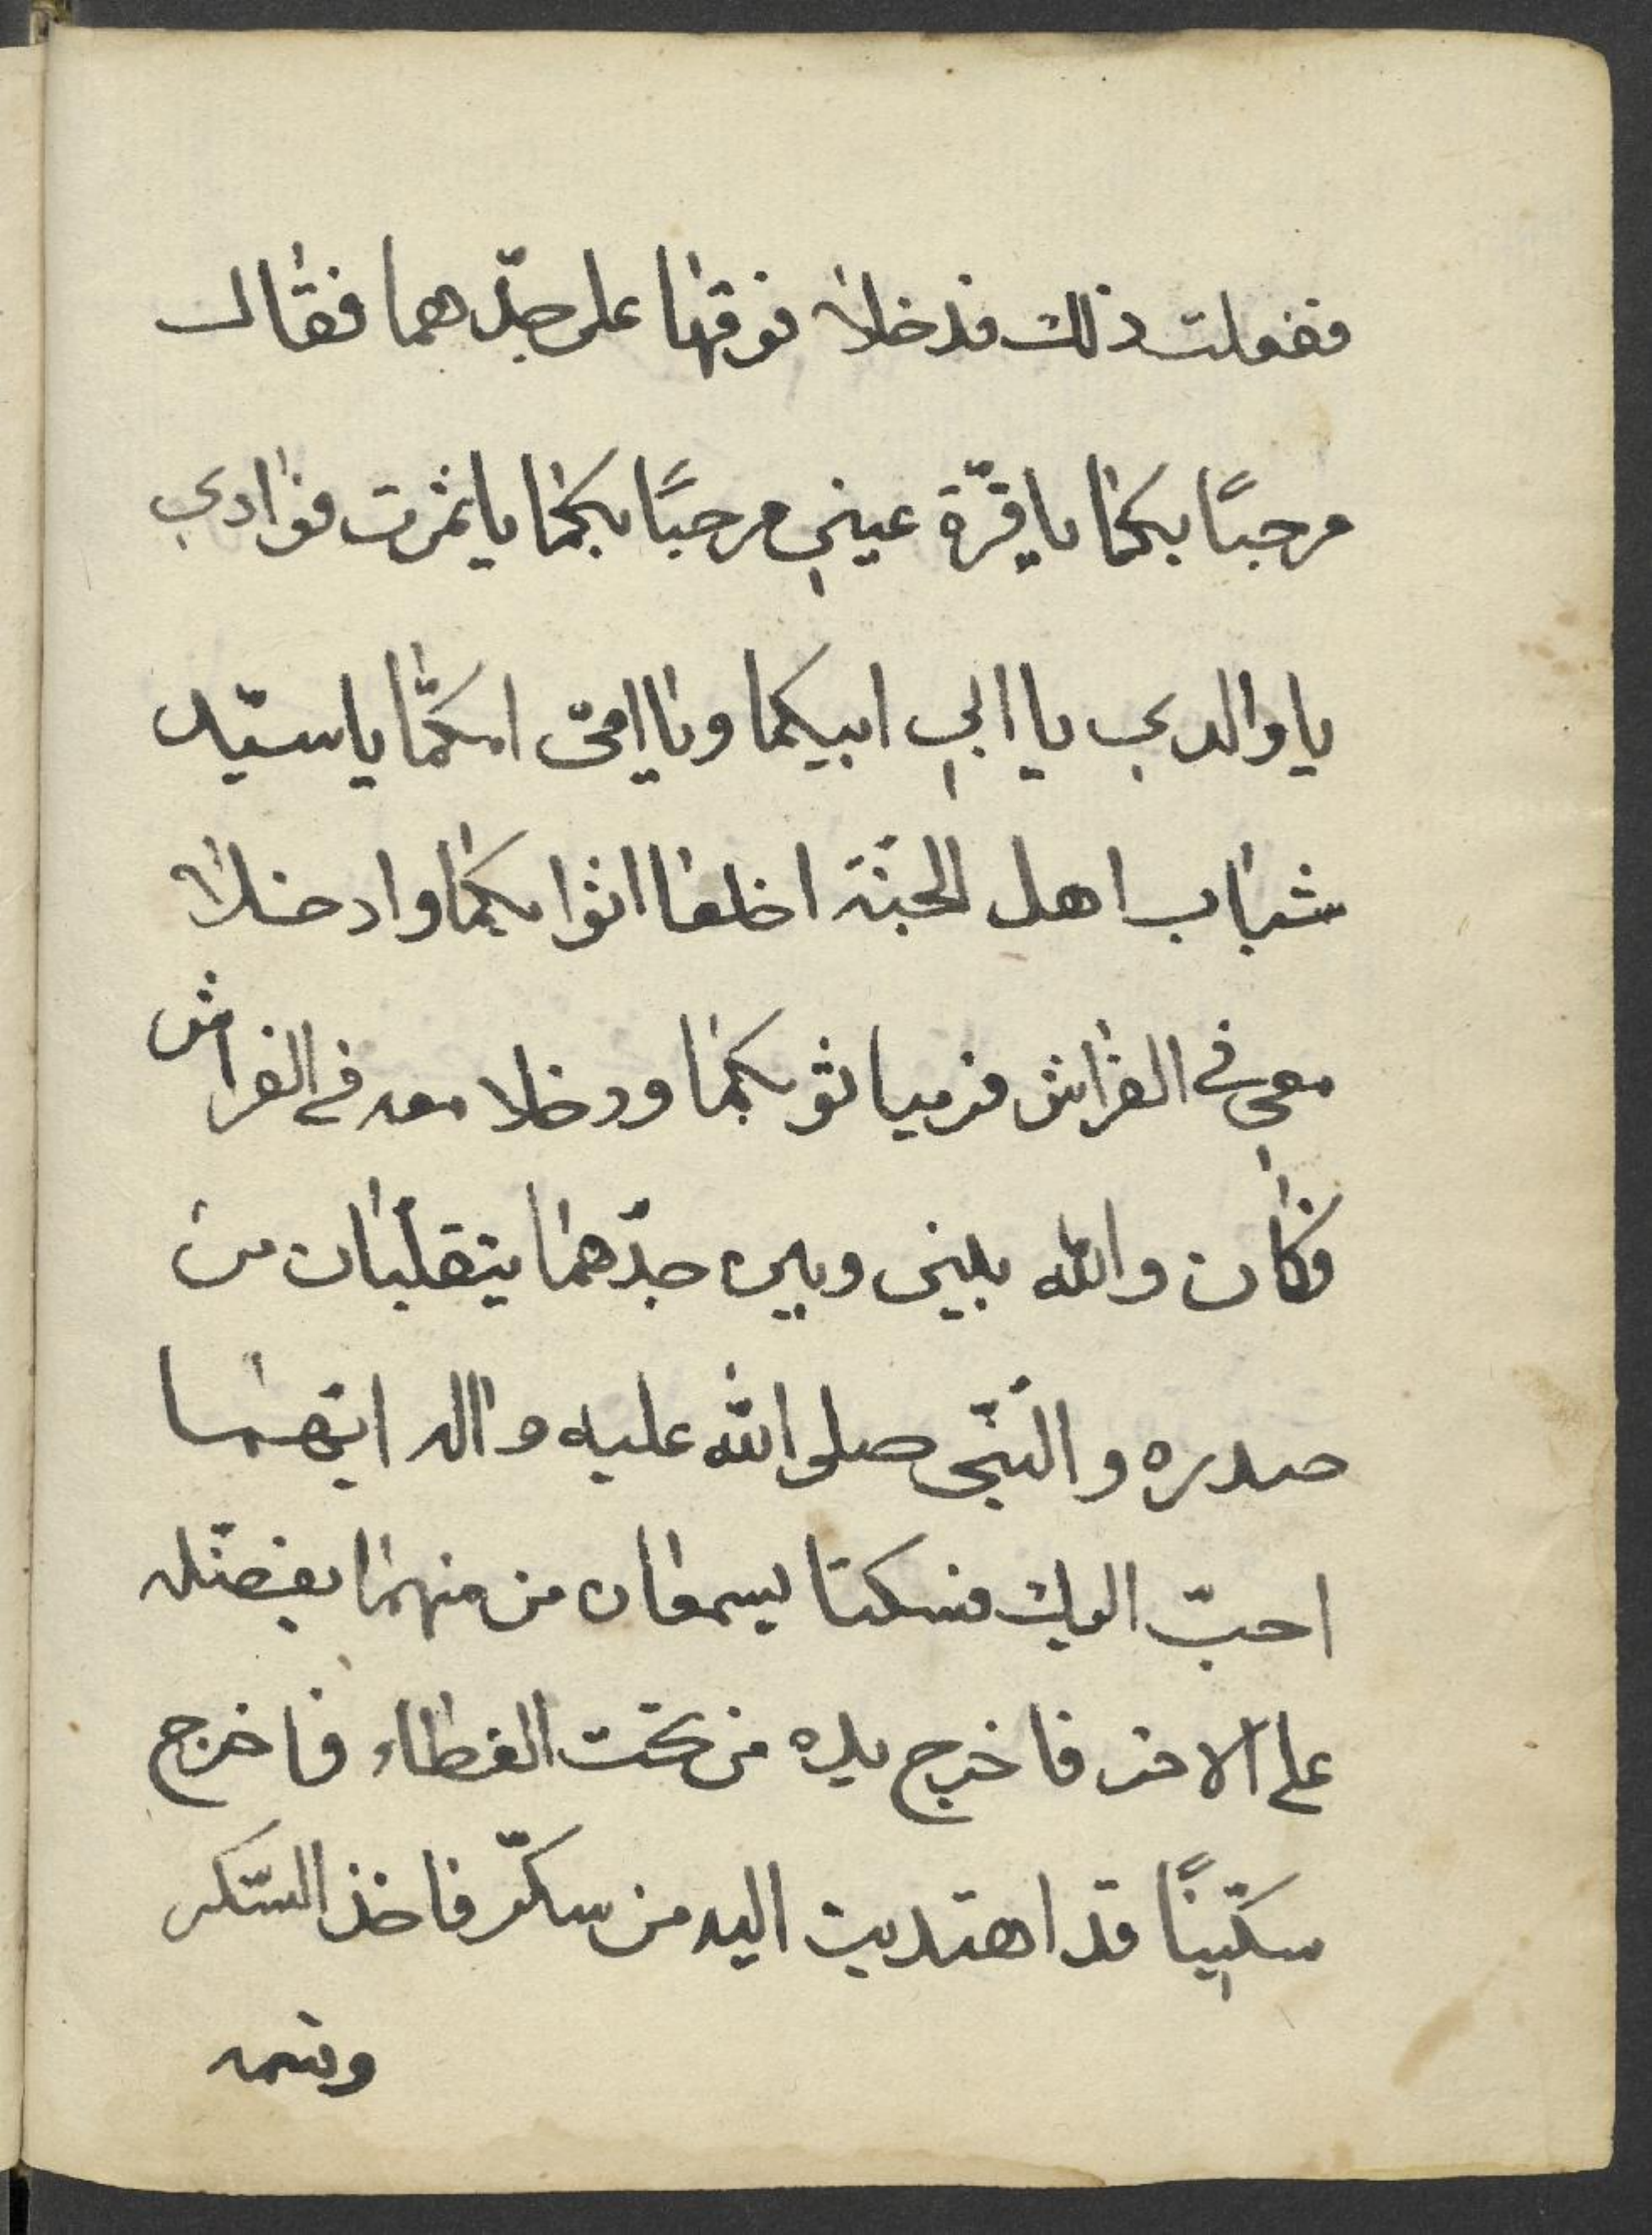 ففعلت ذلك فدخلا فوقها على جدّهما فقال
مرحبًا بكما يا قرّة عيني مرحبًا بكما يا ثمرت فؤادي
يا والدي يا ابي ابيكما ويا امّى امكمّا يا سيّد
شباب اهل الجنّة اخلعا اثوابكما وادخلا
معي في الفراش فرميا ثوبكما ودخلا معه في الفراش
فكان والله بيني وبين جدّهما يتقلّبان من
صدره والنّبّى صلى الله عليه واله ايّهما
احبّ اليك فسكتا يسمعان من منهما يفضّله
على الاخر فاخرج يده من تحت الغطاء فاخرج
سكّينًا قد اهتديت اليه من سكّر فاخذ السّكر
وقسمه